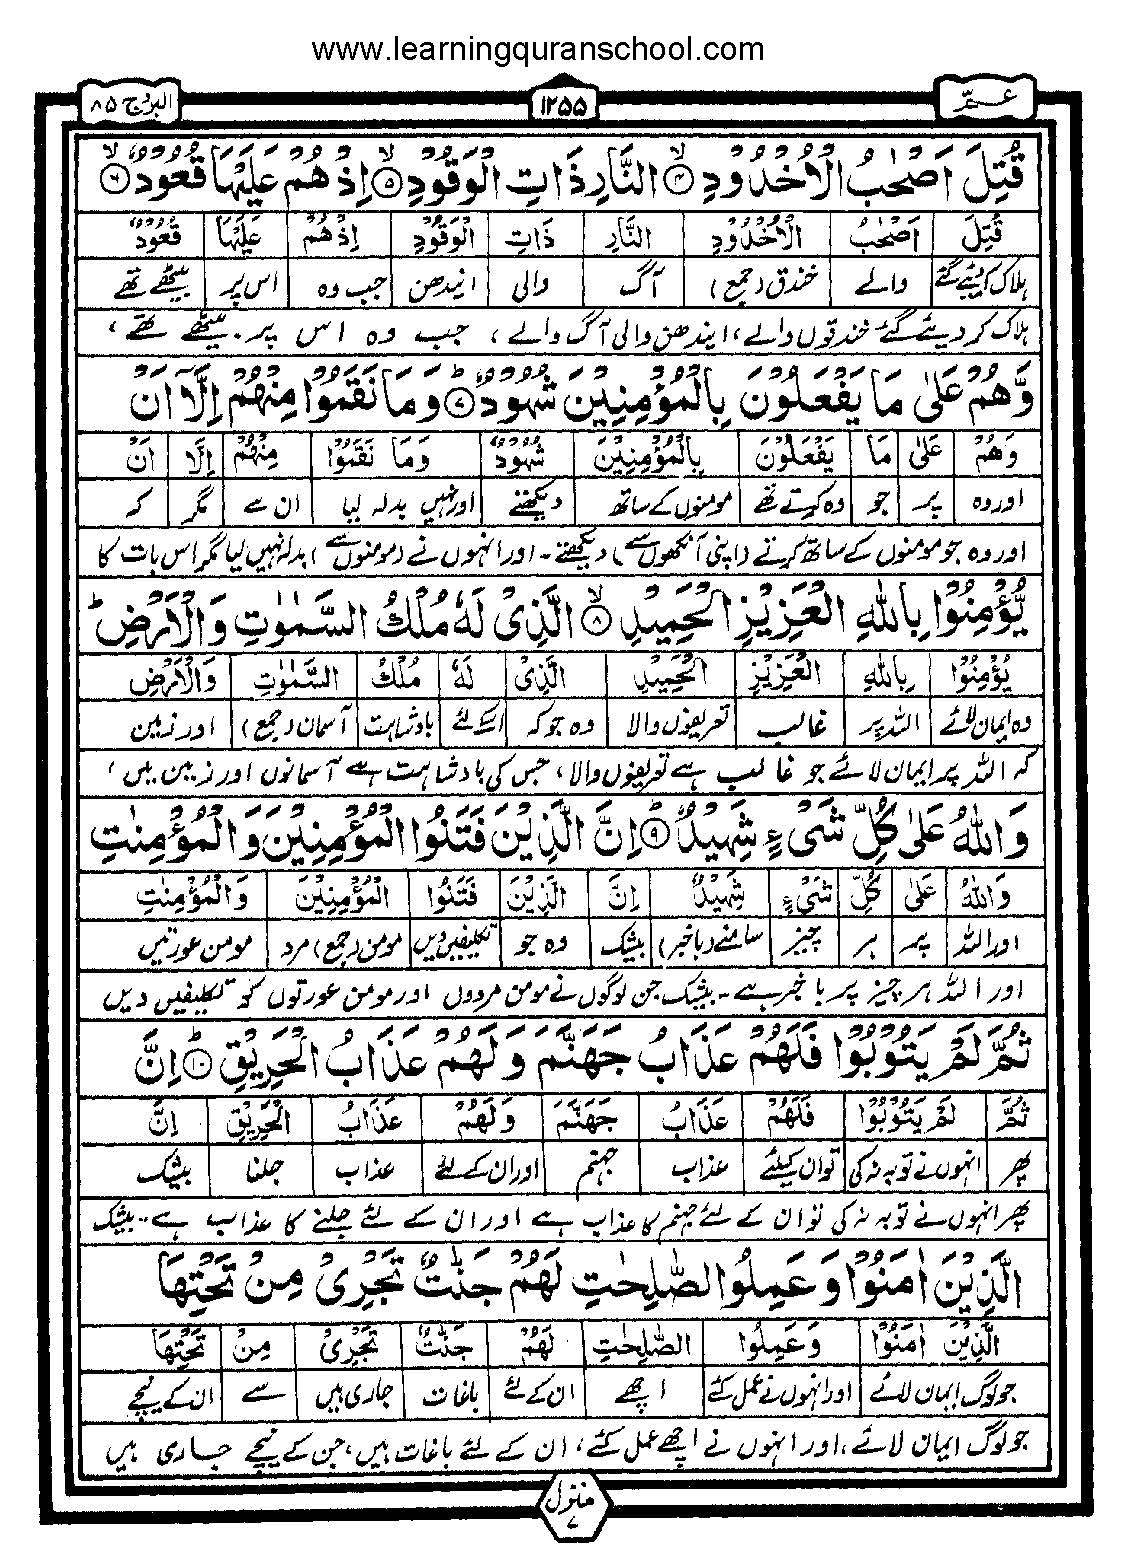 www.learningquranschool.com
عـــم ١٢٥٥ البروج ٨٥
قُتِلَ اَصْحٰبُ الْاُخْدُوْدِ ۙ﴿۴﴾ النَّارِ ذَاتِ الْوَقُوْدِ ۙ﴿۵﴾ اِذْ هُمْ عَلَيْهَا قُعُوْدٌ ۙ﴿۶﴾
قُتِلَ اَصْحٰبُ الْاُخْدُوْدِ النَّارِ ذَاتِ الْوَقُوْدِ اِذْهُمْ عَلَيْهَا قُعُوْدٌ
ہلاک کر دیئے گئے والے خندق (جمع) آگ والی ایندھن جب وہ اس پر بیٹھے تھے
ہلاک کر دیئے گئے خندقوں والے، ایندھن والی آگ والے، جب وہ اس پر بیٹھے تھے،
وَّهُمْ عَلٰى مَا يَفْعَلُوْنَ بِالْمُؤْمِنِيْنَ شُهُوْدٌ ؕ﴿۷﴾ وَمَا نَقَمُوْا مِنْهُمْ اِلَّاۤ اَنْ
وَهُمْ عَلٰى مَا يَفْعَلُوْنَ بِالْمُؤْمِنِيْنَ شُهُوْدٌ وَمَا نَقَمُوْا مِنْهُمْ اِلَّا اَنْ
اور وہ پر جو وہ کرتے تھے مومنوں کے ساتھ دیکھتے اور نہیں بدلہ لیا ان سے مگر کہ
اور وہ جو مومنوں کے ساتھ کرتے (اپنی آنکھوں سے) دیکھتے۔ اور انہوں نے (مومنوں سے) بدلہ نہیں لیا مگر اس بات کا
يُّؤْمِنُوْا بِاللّٰهِ الْعَزِيْزِ الْحَمِيْدِ ۙ﴿۸﴾ الَّذِيْ لَهٗ مُلْكُ السَّمٰوٰتِ وَالْاَرْضِ ؕ
يُؤْمِنُوْا بِاللّٰهِ الْعَزِيْزِ الْحَمِيْدِ الَّذِيْ لَهٗ مُلْكُ السَّمٰوٰتِ وَالْاَرْضِ
وہ ایمان لائے اللہ پر غالب تعریفوں والا وہ جو کہ اسکے لئے بادشاہت آسمان (جمع) اور زمین
کہ اللہ پر ایمان لائے جو غالب ہے تعریفوں والا، جس کی بادشاہت ہے آسمانوں اور زمین میں،
وَاللّٰهُ عَلٰى كُلِّ شَيْءٍ شَهِيْدٌ ؕ﴿۹﴾ اِنَّ الَّذِيْنَ فَتَنُوا الْمُؤْمِنِيْنَ وَالْمُؤْمِنٰتِ
وَاللّٰهُ عَلٰى كُلِّ شَيْءٍ شَهِيْدٌ اِنَّ الَّذِيْنَ فَتَنُوا الْمُؤْمِنِيْنَ وَالْمُؤْمِنٰتِ
اور اللہ پر ہر چیز سامنے (باخبر) بیشک وہ جو تکلیفیں دیں مومن (جمع) مرد مومن عورتیں
اور اللہ ہر چیز پر باخبر ہے۔ بیشک جن لوگوں نے مومن مردوں اور مومن عورتوں کو تکلیفیں دیں
ثُمَّ لَمْ يَتُوْبُوْا فَلَهُمْ عَذَابُ جَهَنَّمَ وَلَهُمْ عَذَابُ الْحَرِيْقِ ؕ﴿۱۰﴾ اِنَّ
ثُمَّ لَمْ يَتُوْبُوْا فَلَهُمْ عَذَابُ جَهَنَّمَ وَلَهُمْ عَذَابُ الْحَرِيْقِ اِنَّ
پھر انہوں نے توبہ نہ کی تو ان کیلئے عذاب جہنم اور ان کے لئے عذاب جلنا بیشک
پھر انہوں نے توبہ نہ کی تو ان کے لئے جہنم کا عذاب ہے اور ان کے لئے جلنے کا عذاب ہے۔ بیشک
الَّذِيْنَ اٰمَنُوْا وَعَمِلُوا الصّٰلِحٰتِ لَهُمْ جَنّٰتٌ تَجْرِيْ مِنْ تَحْتِهَا
الَّذِيْنَ اٰمَنُوْا وَعَمِلُوا الصّٰلِحٰتِ لَهُمْ جَنّٰتٌ تَجْرِيْ مِنْ تَحْتِهَا
جو لوگ ایمان لائے اور انہوں نے عمل کئے اچھے ان کے لئے باغات جاری ہیں سے ان کے نیچے
جو لوگ ایمان لائے، اور انہوں نے اچھے عمل کئے، ان کے لئے باغات ہیں، جن کے نیچے جاری ہیں
منزل ۷